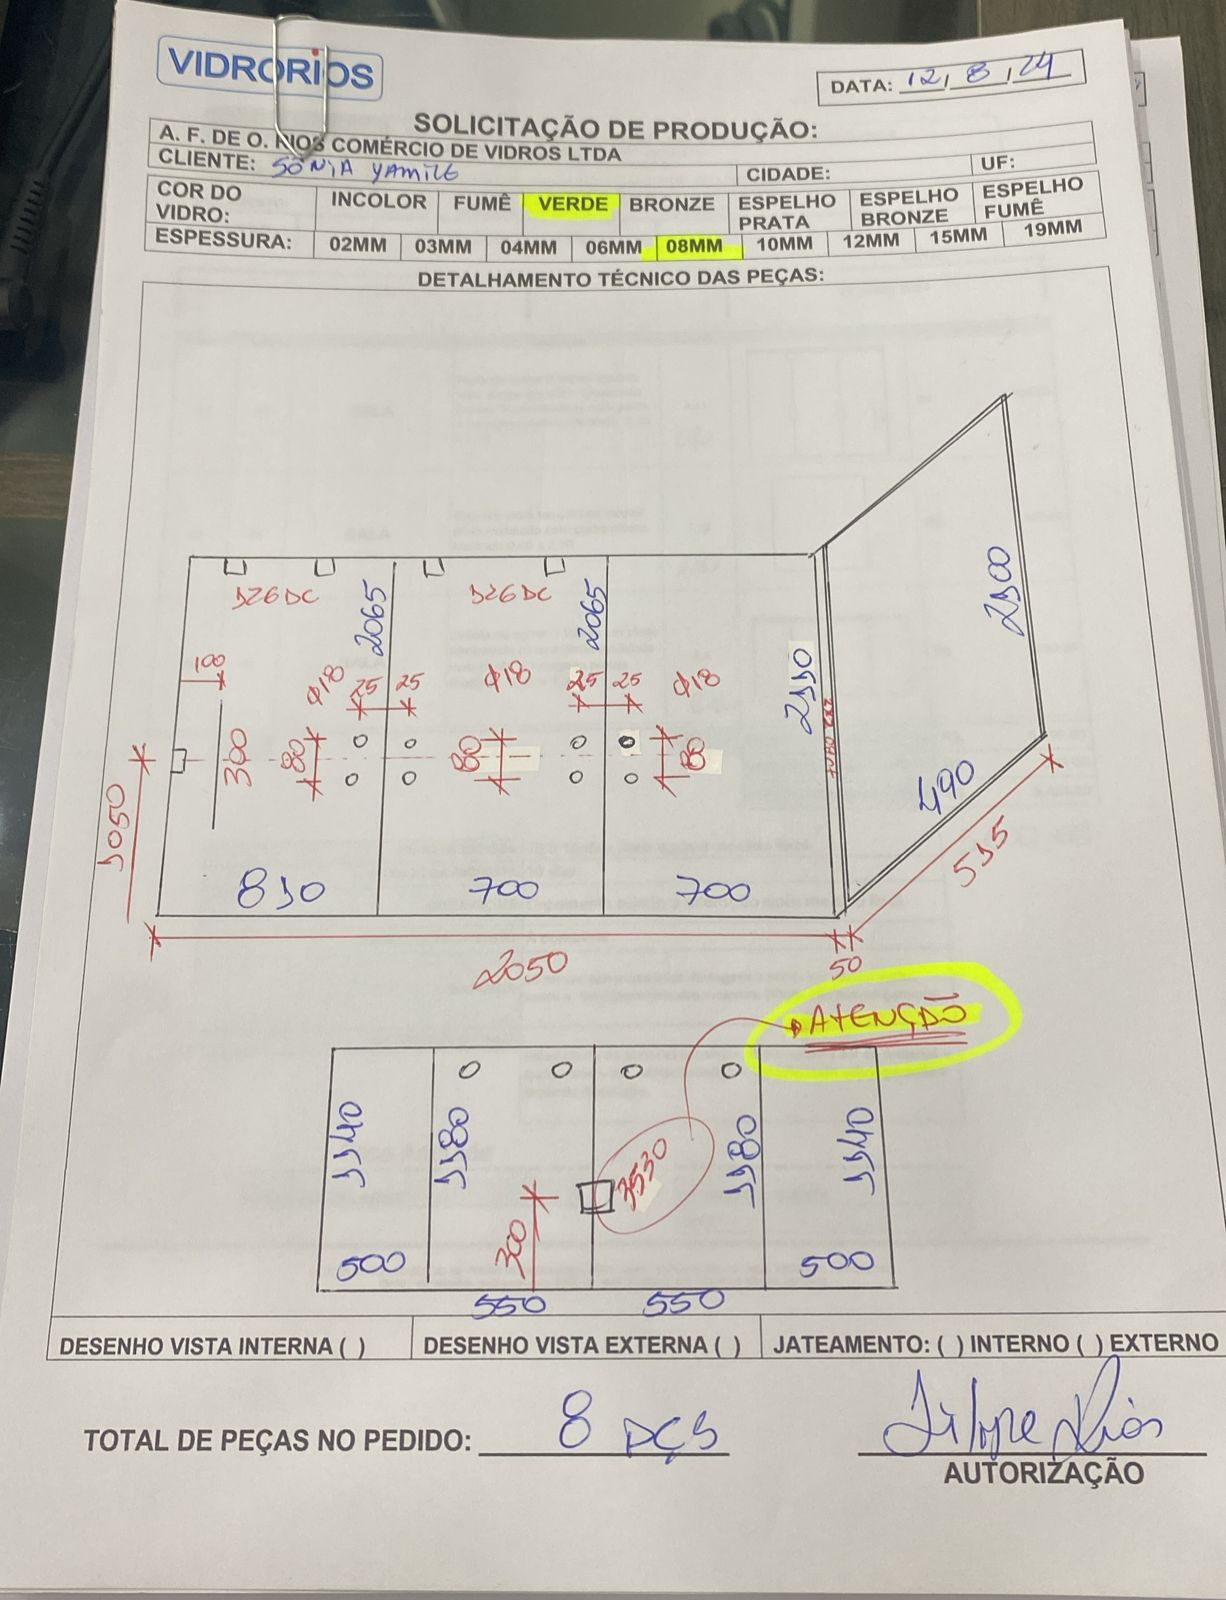 VIDRORIOS
DATA: 12, 8, 24
SOLICITAÇÃO DE PRODUÇÃO:
A. F. DE O. RIOS COMÉRCIO DE VIDROS LTDA
CLIENTE: SÔNIA YAMILE CIDADE: UF:
COR DO VIDRO: INCOLOR FUMÊ VERDE BRONZE ESPELHO PRATA ESPELHO BRONZE ESPELHO FUMÊ
ESPESSURA: 02MM 03MM 04MM 06MM 08MM 10MM 12MM 15MM 19MM
DETALHAMENTO TÉCNICO DAS PEÇAS:
2100
126DC 2065 126DC 2065
100 Φ18 25 25 Φ18 25 25 Φ18 2110
TUBO 2X2
300 80 80 80
1050
490
515
810 700 700
2050 50
ATENÇÃO
1140 1180 3530 1180 1140
300
500 500
550 550
DESENHO VISTA INTERNA ( ) DESENHO VISTA EXTERNA ( ) JATEAMENTO: ( ) INTERNO ( ) EXTERNO
TOTAL DE PEÇAS NO PEDIDO: 8 PÇS
Filipe Rios
AUTORIZAÇÃO